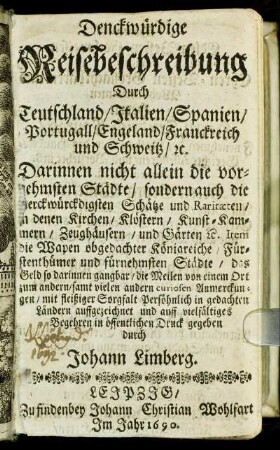 Denckwürdige
Reisebeschreibung
Durch
Teutschland/ Italien/ Spanien/
Portugall/ Engeland/ Franckreich
und Schweitz/ ꝛc.
Darinnen nicht allein die vor-
nehmsten Städte/ sondern auch die
merckwürckdigsten Schätze und Raritæten/
in denen Kirchen/ Klöstern/ Kunst-Kam-
mern/ Zeughäusern/ und Gärten ꝛc. Item
die Wapen obgedachter Königreiche/ Für-
stenthümer und fürnehmsten Städte/ das
Geld so darinnen gangbar/ die Meilen von einem Ort
zum andern/ samt vielen andern curiosen Anmerckun-
gen/ mit fleißiger Sorgfalt Persöhnlich in gedachten
Ländern auffgezeichnet und auff vielfältiges
Begehren in öffentlichen Druck gegeben
durch
Johann Limberg.
1692
LEIPZIG/
Zu finden bey Johann Christian Wohlfart
Im Jahr 1690.